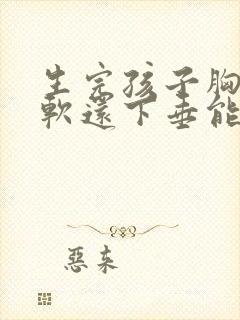 生完孩子胸
軟還下垂能
惡来